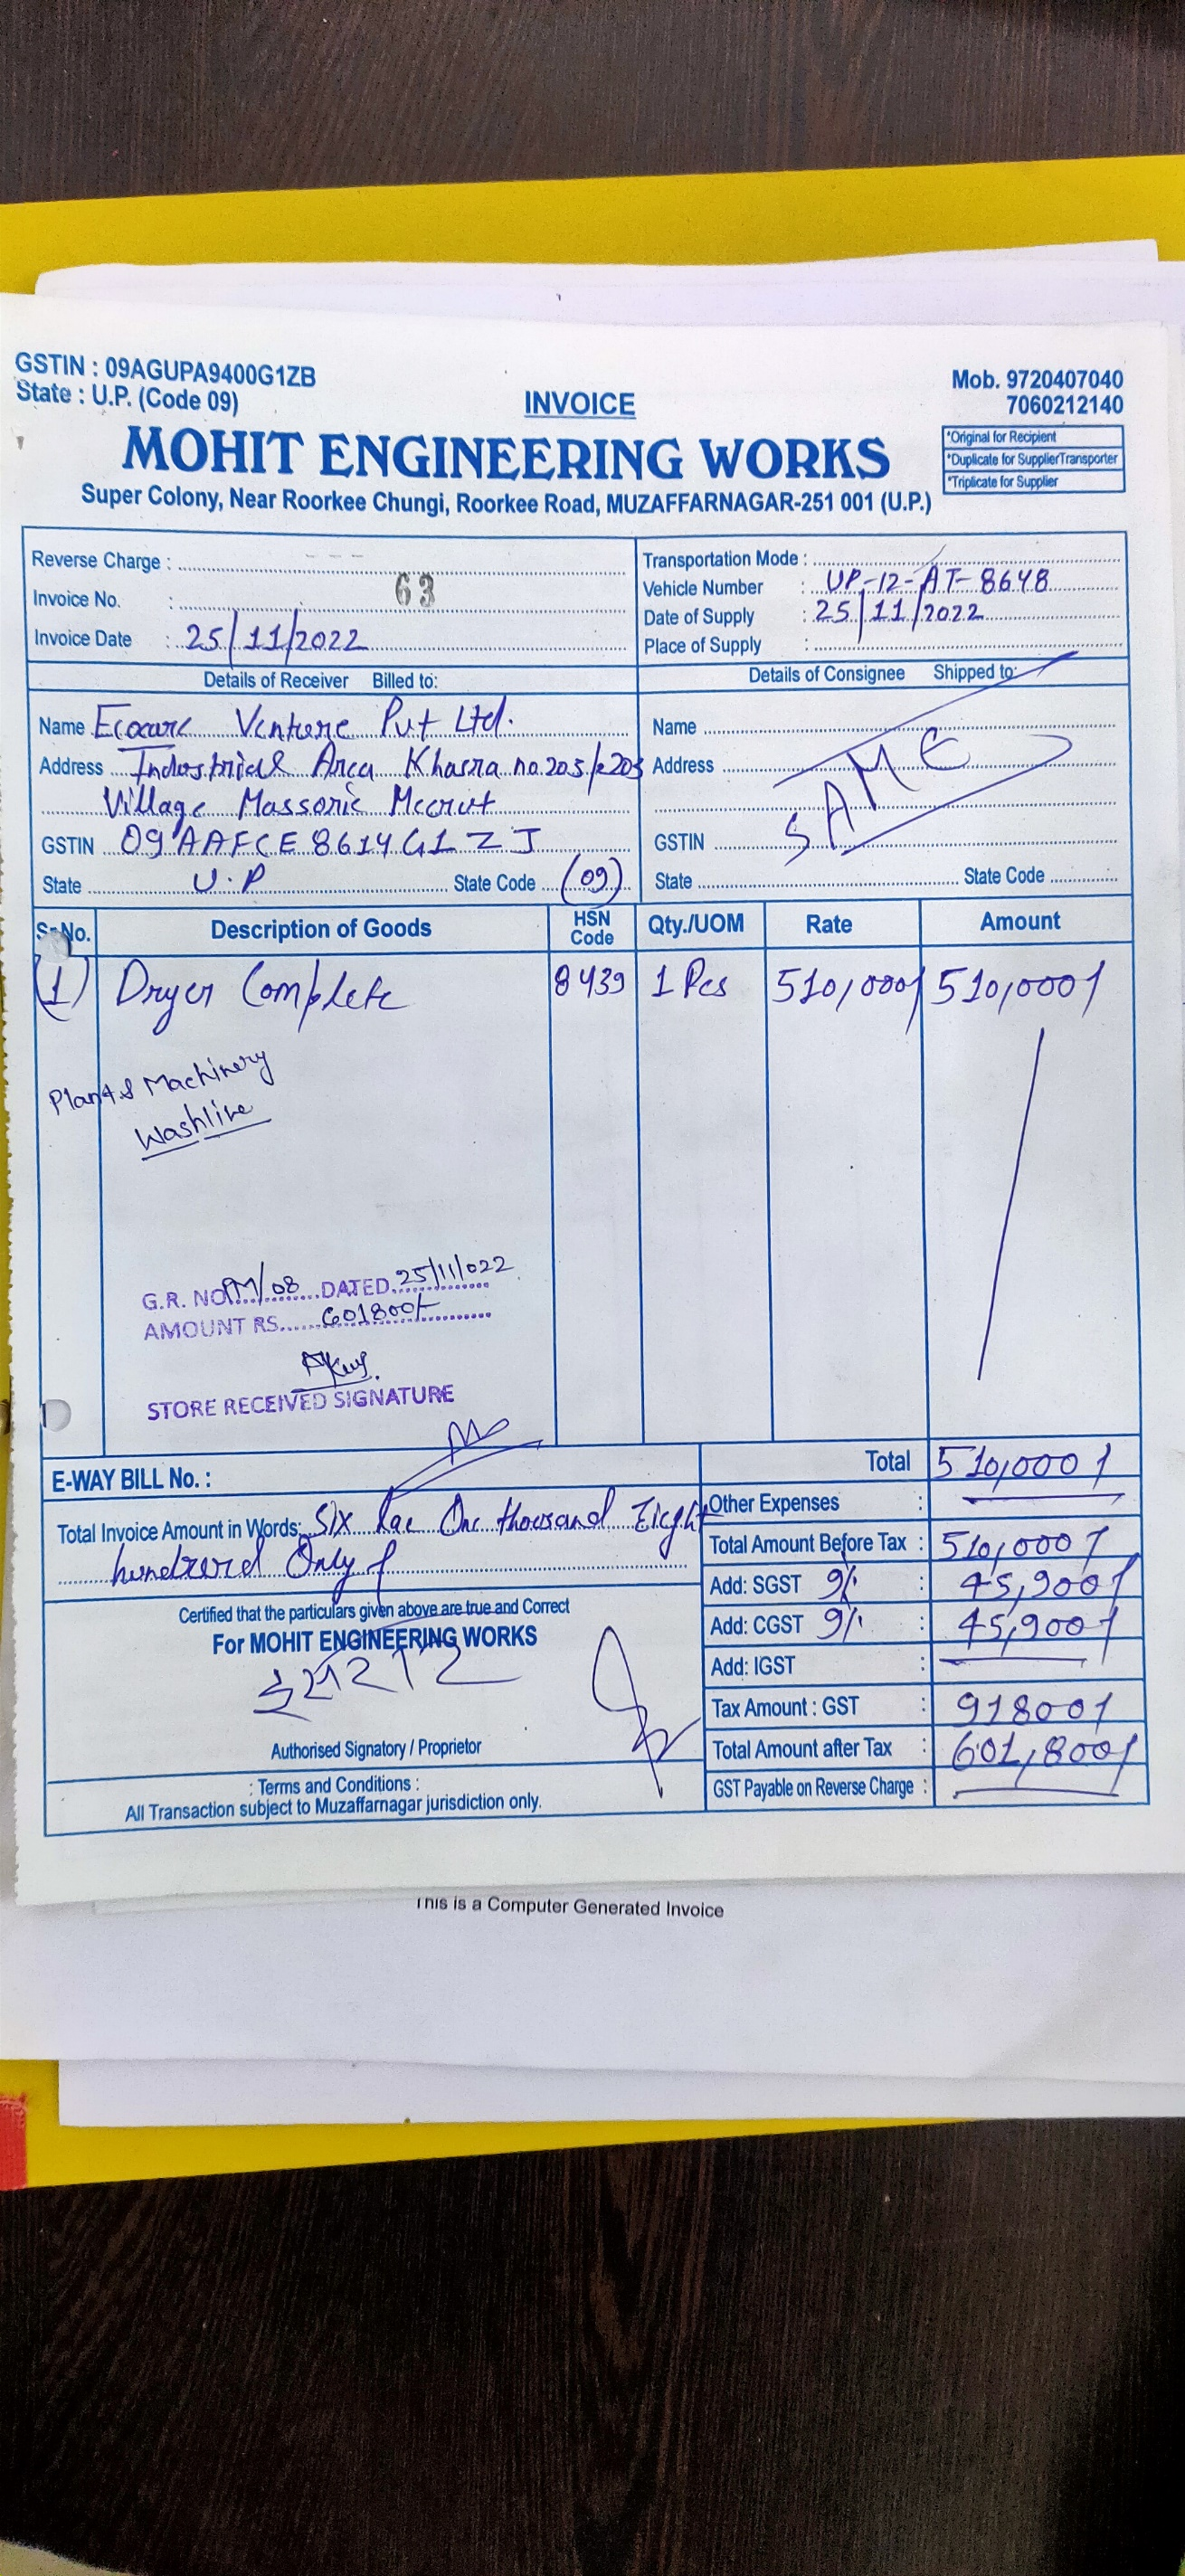 GSTIN : 09AGUPA9400G1ZB
State : U.P. (Code 09)
INVOICE
Mob. 9720407040
7060212140
MOHIT ENGINEERING WORKS
*Original for Recipient
*Duplicate for Supplier Transporter
*Triplicate for Supplier
Super Colony, Near Roorkee Chungi, Roorkee Road, MUZAFFARNAGAR-251 001 (U.P.)
Reverse Charge :
Invoice No. : 63
Invoice Date : 25/11/2022
Transportation Mode :
Vehicle Number : UP-12-AT-8648
Date of Supply : 25/11/2022
Place of Supply :
Details of Receiver Billed to:
Name Ecocare Venture Pvt Ltd.
Address Industrial Area Khasra no. 205
Village Massorie Meerut
GSTIN 09AAFCE8614G1ZJ
State U.P State Code (09)
Details of Consignee Shipped to:
Name
Address
SAME
GSTIN
State State Code
Sr. No. Description of Goods HSN Code Qty./UOM Rate Amount
(1) Dryer Complete 8439 1 Pcs 510,000/ 510,000/
Plant & Machinery
Washline
G.R. NO. PM/08 DATED 25/11/022
AMOUNT RS. 601800/-
STORE RECEIVED SIGNATURE
E-WAY BILL No. :
Total Invoice Amount in Words: Six Lac One thousand Eight
hundrerd Only/
Certified that the particulars given above are true and Correct
For MOHIT ENGINEERING WORKS
Authorised Signatory / Proprietor
: Terms and Conditions :
All Transaction subject to Muzaffarnagar jurisdiction only.
Total 510,000/
Other Expenses :
Total Amount Before Tax : 510,000/
Add: SGST 9% : 45,900/
Add: CGST 9% : 45,900/
Add: IGST :
Tax Amount : GST : 91800/
Total Amount after Tax : 601,800/
GST Payable on Reverse Charge :
This is a Computer Generated Invoice